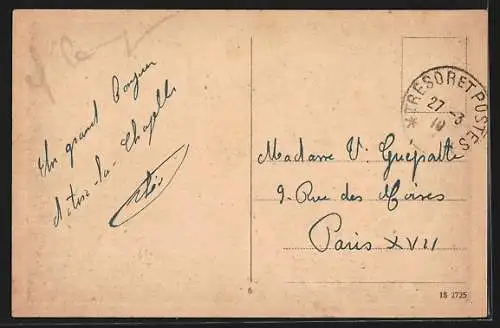 Un grand bonjour
d'Aix-la-Chapelle
TRESOR ET POSTES
27 -3
19
Madame V. Guepratte
9 Rue des Moines
Paris XVII
6
18 2725